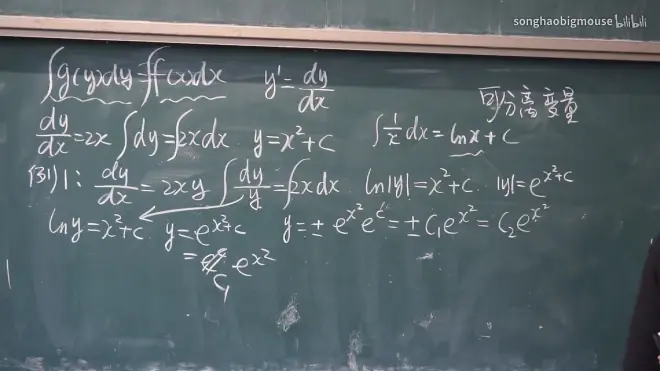 songhaobigmouse bilibili
∫g(y)dy=∫f(x)dx y'=dy/dx
可分离变量
dy/dx=2x ∫dy=∫2xdx y=x²+c ∫1/x dx=lnx+c
例1: dy/dx=2xy ∫dy/y=∫2xdx ln|y|=x²+c |y|=e^(x²+c)
lny=x²+c y=e^(x²+c) y=±e^(x²)e^c=±C₁e^(x²)=C₂e^(x²)
= e^(x²)
C₁